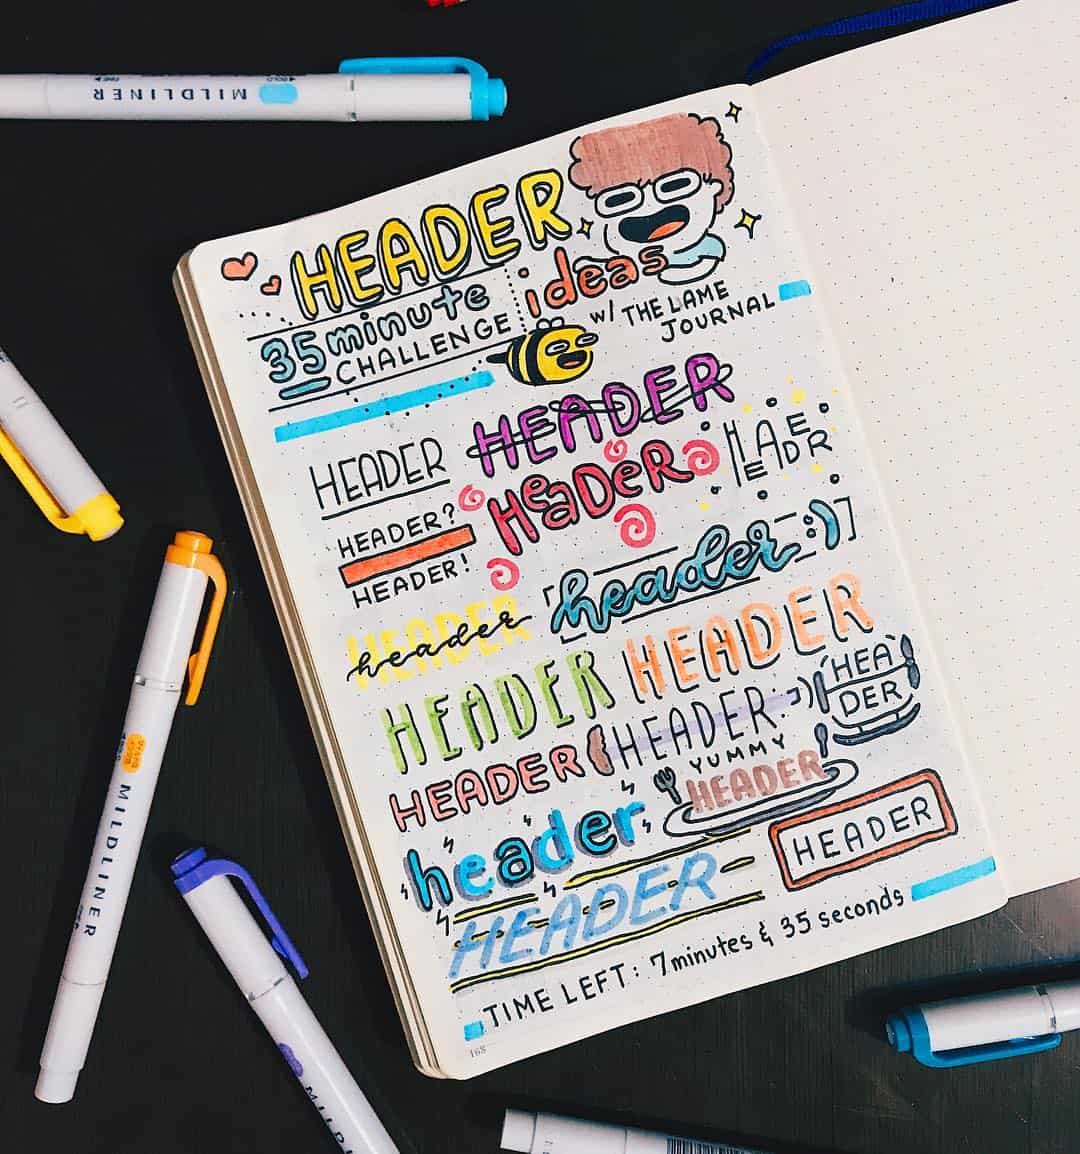 MILDLINER
BOLD
FINE
HEADER
ideas
35 minute
CHALLENGE
w/ THE LAME
JOURNAL
HEADER
HEADER
HEADER
HEADER?
HEADER!
HeaDeR
header
HEADER
header
HEADER
HEADER
HEADER
HEADER
HEA
DER
YUMMY
HEADER
header
HEADER
HEADER
TIME LEFT: 7 minutes & 35 seconds
168
MILDLINER
MILDL